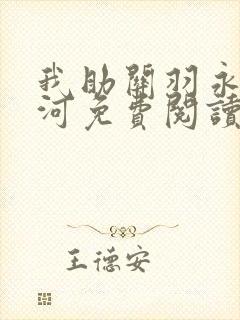 我助關羽永
河免費閱讀
王德安